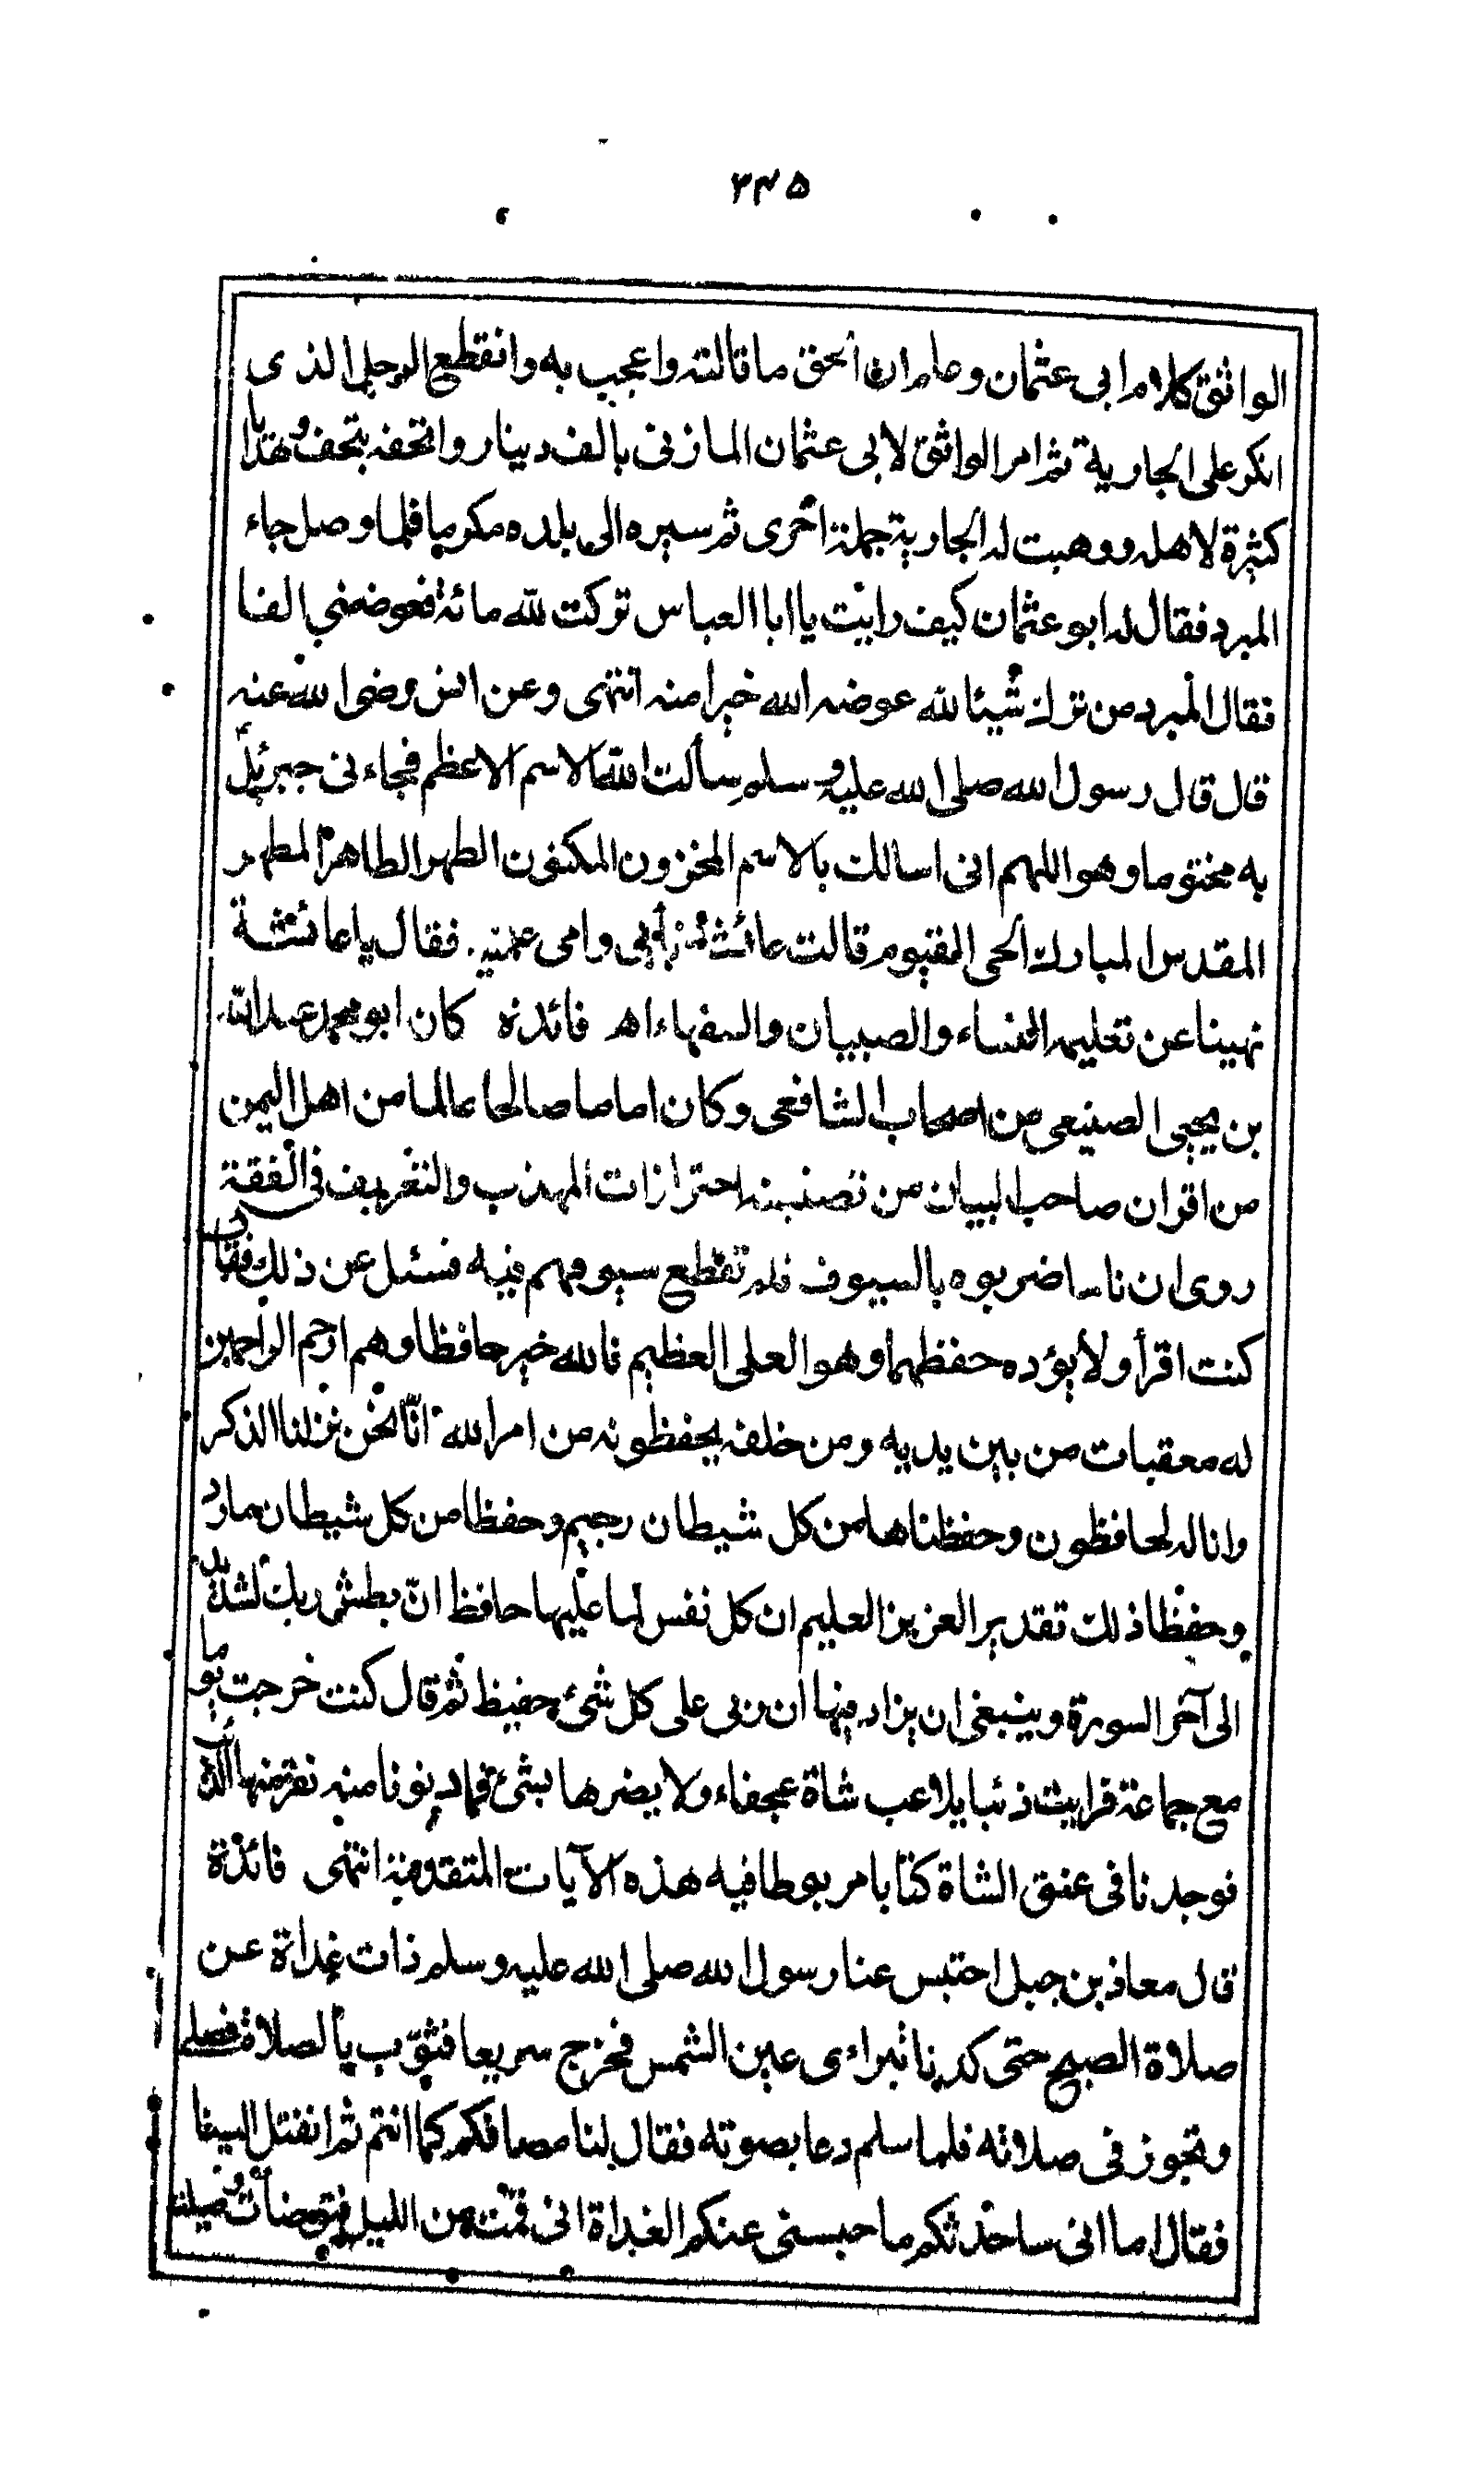 ٣٤٥
الواثق كلام ابى عثمان وعلم ان الحق ما قالته واعجب به وانقطع الرجل الذى
انكر على الجارية ثم امر الواثق لابى عثمان المازنى بالف دينار واتحفه بتحف وهدايا
كثيرة لاهله ووهبت له الجارية جملة اخرى ثم سيره الى بلده مكرما فلما وصل جاء
المبرد فقال له ابو عثمان كيف رايت يا ابا العباس تركت لله مائة فعوضنى الفا
فقال المبرد من ترك شيئا لله عوضه الله خيرا منه انتهى وعن انس رضى الله عنه
قال قال رسول الله صلى الله عليه وسلم سألت الله الاسم الاعظم فجاءنى جبرئيل
به مختوما وهو اللهم انى اسالك بالاسم المخزون المكنون الطهر الطاهر المطهر
المقدس المبارك الحى القيوم قالت عائشة بأبى وامى علمنيه . فقال يا عائشة
نهينا عن تعليمه النساء والصبيان والسفهاء اهـ فائدة كان ابو محمد عبد الله
بن يحيى الصنيعى من اصحاب الشافعى وكان اماما صالحا عالما من اهل اليمن
من اقران صاحب البيان من تصنيفه احترازات المهذب والتعريف فى الفقة
روى ان ناسا ضربوه بالسيوف فلم تقطع سيوفهم فيه فسئل عن ذلك فقال
كنت اقرأ ولا يؤده حفظهما وهو العلى العظيم فالله خير حافظا وهم ارحم الراحمين
له معقبات من بين يديه ومن خلفه يحفظونه من امر الله انّا نحن نزلنا الذكر
وانا له لحافظون وحفظناها من كل شيطان رجيم وحفظا من كل شيطان مارد
وحفظا ذلك تقدير العزيز العليم ان كل نفس لما عليها حافظ انّ بطش ربك لشديد
الى آخر السورة وينبغى ان يزاد فيها ان ربى على كل شئ حفيظ ثم قال كنت خرجت يوما
مع جماعة فرايت ذئبا يلاعب شاة عجفاء ولا يضرها بشئ فما دنونا منه نفر منها الذئب
فوجدنا فى عنق الشاة كتابا مربوطا فيه هذه الآيات المتقدمة انتهى فائدة
قال معاذ بن جبل احتبس عنا رسول الله صلى الله عليه وسلم ذات غداة عن
صلاة الصبح حتى كدنا نتراءى عين الشمس فخرج سريعا فثوّب بالصلاة فصلى
وتجوز فى صلاته فلما سلم دعا بصوته فقال لنا مصافكم كما انتم ثم انفتل الينا
فقال اما انى ساحدثكم ما حبسنى عنكم الغداة انى قمت من الليل فتوضأت وصليت